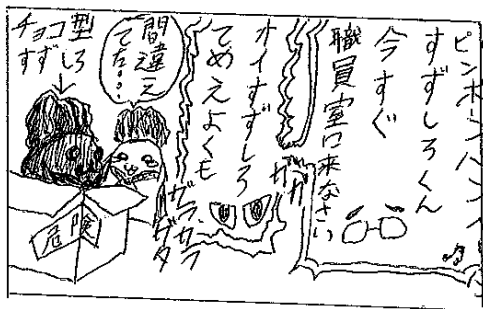 ピンポンパン
すずしろくん
今すぐ
職員室に来なさい
ガガ
オイすずしろ
てめえよくも
ガラガラ
間違え
てた…
チョコ型
すずしろ
危険